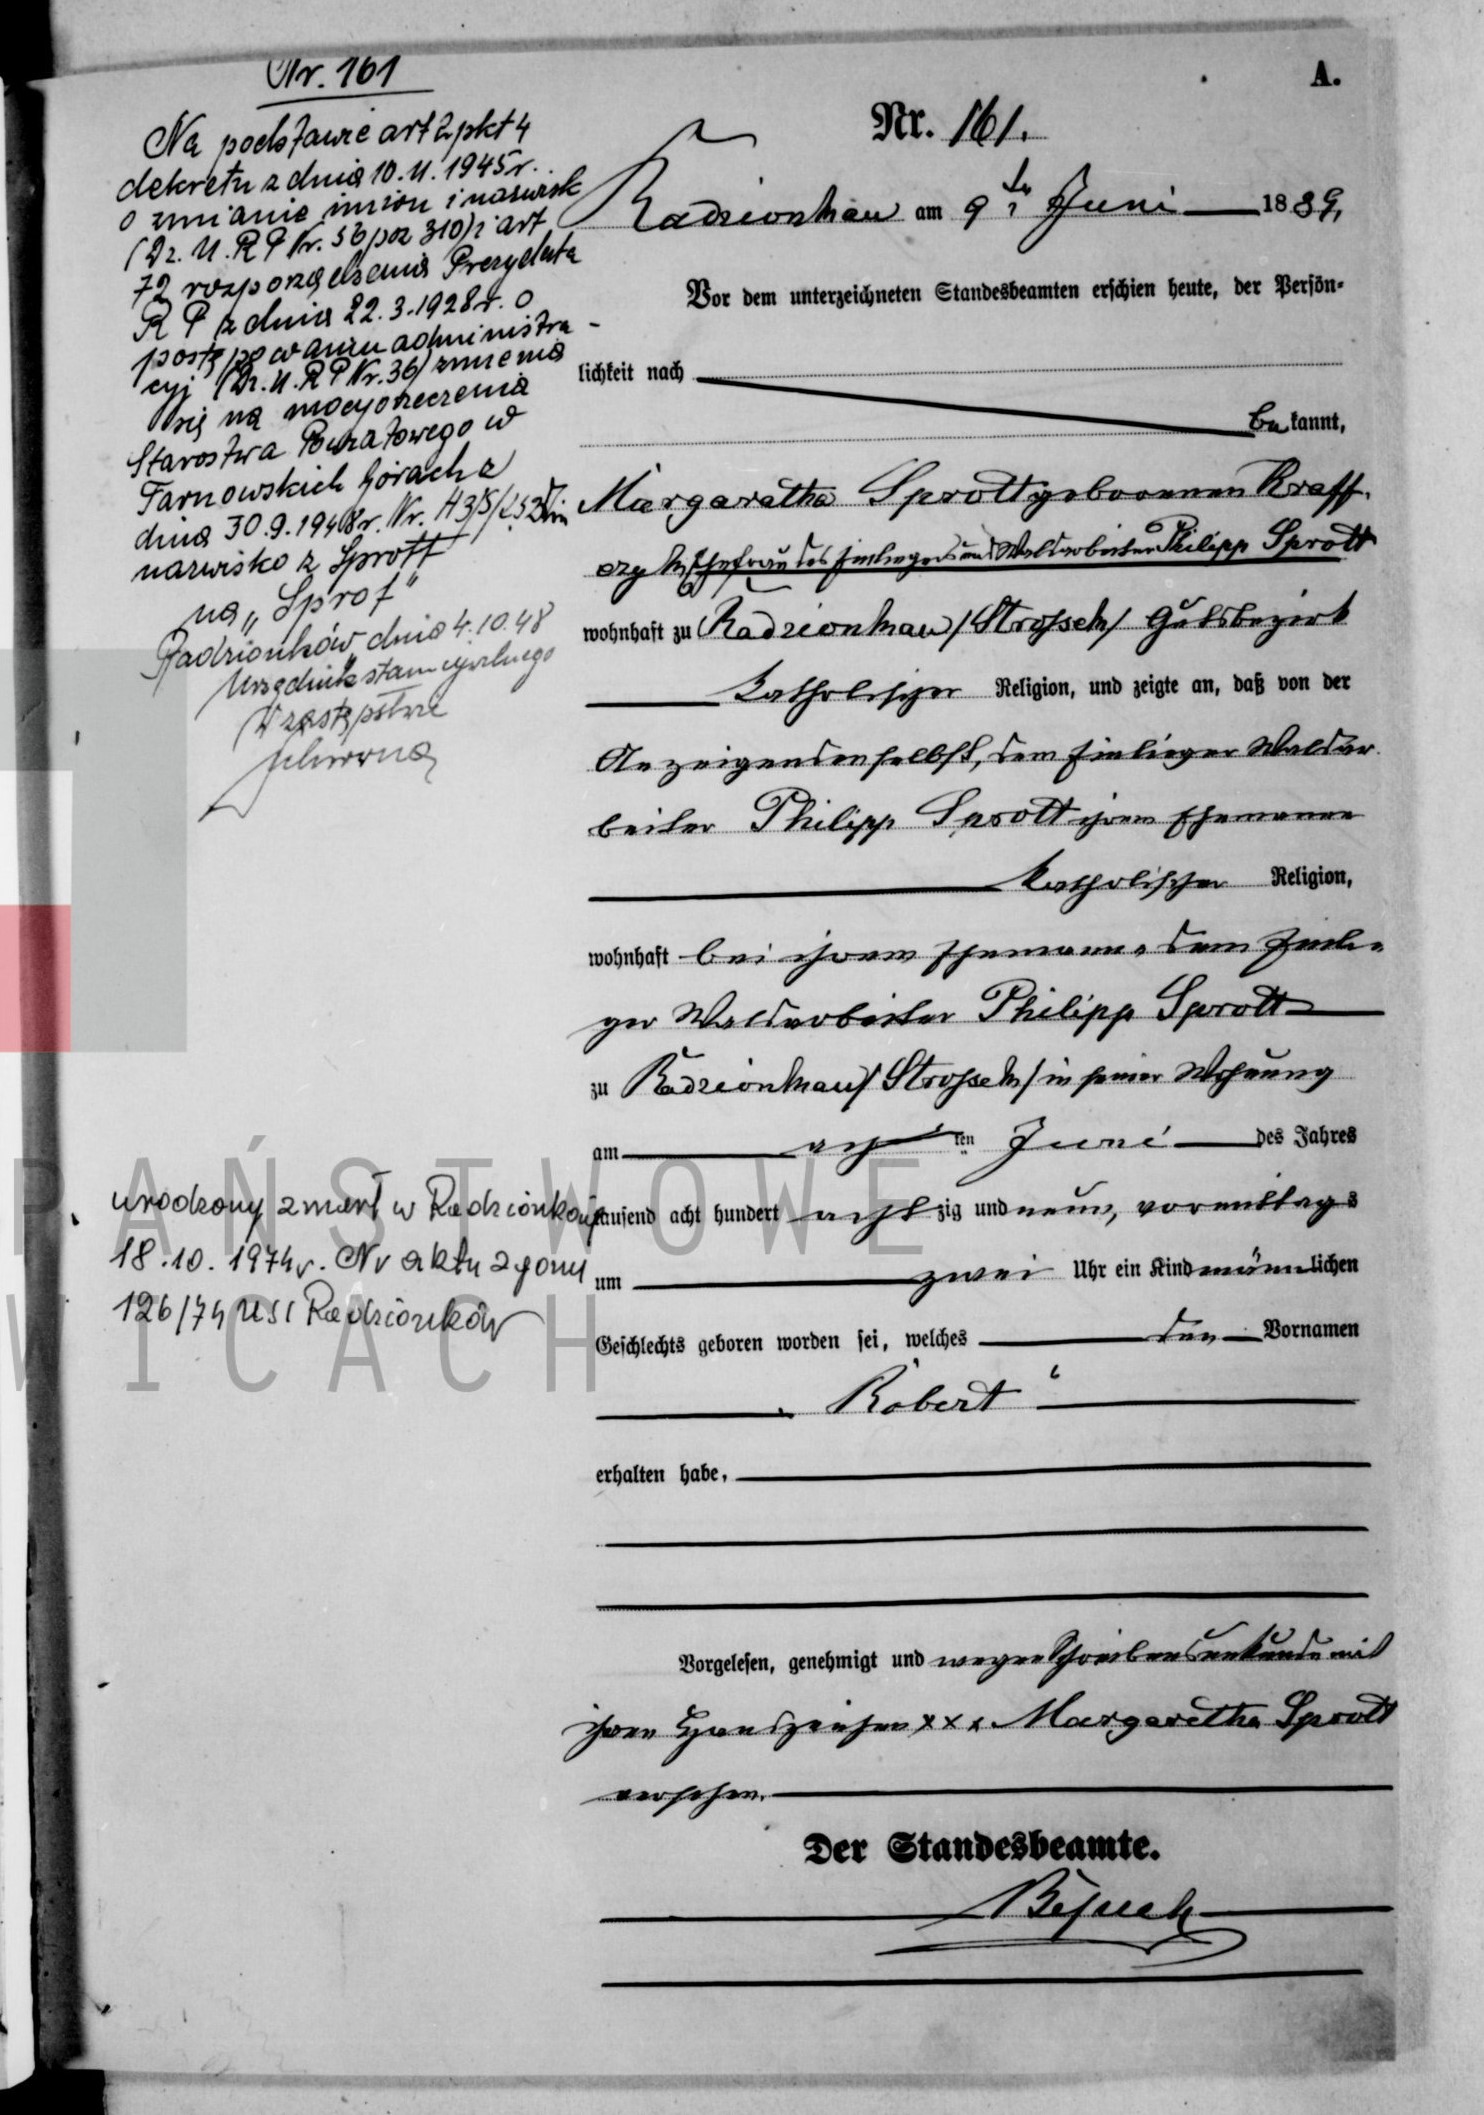 Nr. 161
Na podstawie art 2 pkt 4
dekretu z dnia 10.11.1945 r.
o zmianie imion i nazwisk
(Dz. U. R P Nr. 56 poz 310) i art
72 rozporządzenia Prezydenta
R P z dnia 22.3.1928 r. o
postępowaniu administra-
cyj (Dz. U. R P Nr. 36) zmienia
się na mocy orzeczenia
Starostwa Powiatowego w
Tarnowskich Górach z
dnia 30.9.1948 r. Nr.
nazwisko z Sprott
na „Sprot"
Radzionków, dnia 4.10.48
Urzędnik stanu cywilnego
W zastępstwie
urodzony zmarł w Radzionkowie
18.10.1974 r. Nr aktu zgonu
126/74 USC Radzionków
A.
Nr. 161.
Radzionkau am 9ten Juni 1889,
Vor dem unterzeichneten Standesbeamten erschien heute, der Persön-
lichkeit nach
bekannt,
Margaretha Sprott geborenen
Ehefrau des Einliegers und Waldarbeiter Philipp Sprott
wohnhaft zu Radzionkau /Strossek/ Gutsbezirk
katholischer Religion, und zeigte an, daß von der
Anzeigenden selbst, dem Einlieger Waldar
beiter Philipp Sprott ihrem Ehemanne
katholischer Religion,
wohnhaft bei ihrem Ehemanne dem Einlie
ger Waldarbeiter Philipp Sprott
zu Radzionkau /Strossek/ in seiner Wohnung
am achten Juni des Jahres
tausend acht hundert achtzig und neun, vormittags
um zwei Uhr ein Kind männlichen
Geschlechts geboren worden sei, welches den Vornamen
„Robert"
erhalten habe,
Vorgelesen, genehmigt und wegen Schreibensunkunde mit
ihren Handzeichen x x x Margaretha Sprott
versehen.
Der Standesbeamte.
PAŃSTWOWE
WICACH